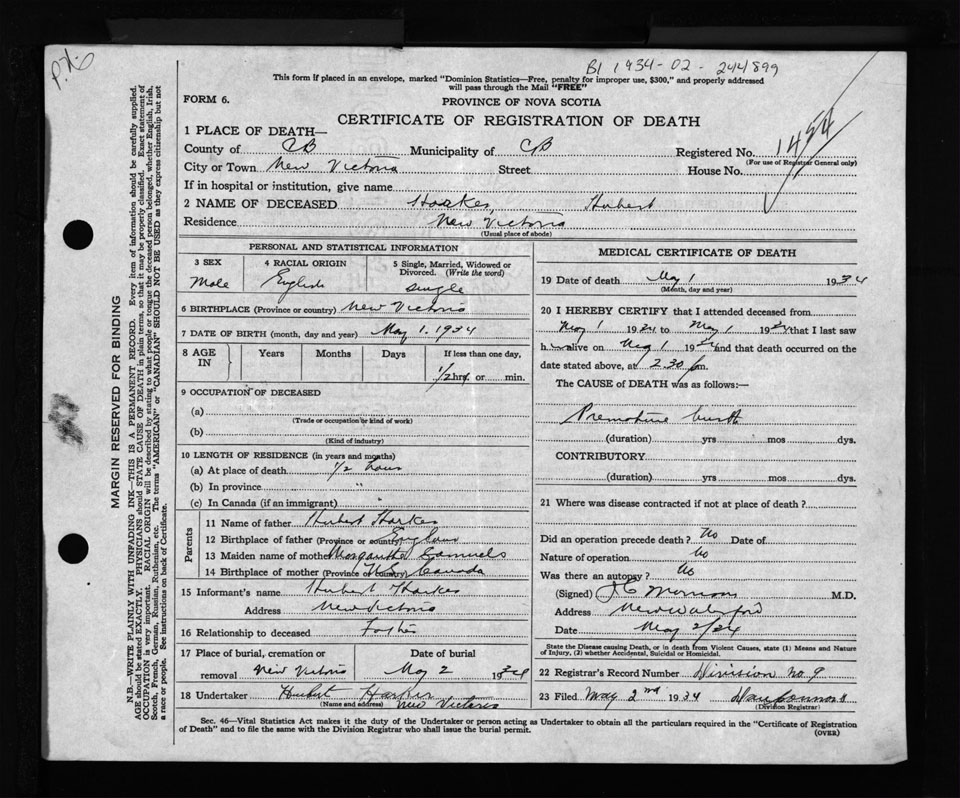 P.H.
B1 1934-02-244899
This form if placed in an envelope, marked "Dominion Statistics—Free, penalty for improper use, $300," and properly addressed
will pass through the Mail "FREE"
FORM 6.
PROVINCE OF NOVA SCOTIA
CERTIFICATE OF REGISTRATION OF DEATH
1484
1 PLACE OF DEATH—
County of CB Municipality of CB Registered No.
(For use of Registrar General only)
City or Town New Victoria Street House No.
If in hospital or institution, give name
2 NAME OF DECEASED Harkes, Hubert
Residence New Victoria
(Usual place of abode)
PERSONAL AND STATISTICAL INFORMATION
3 SEX 4 RACIAL ORIGIN 5 Single, Married, Widowed or
Divorced. (Write the word)
Male English single
6 BIRTHPLACE (Province or country) New Victoria
7 DATE OF BIRTH (month, day and year) May 1. 1934
8 AGE IN Years Months Days If less than one day,
1/2 hrs or min.
9 OCCUPATION OF DECEASED
(a)
(Trade or occupation or kind of work)
(b)
(Kind of industry)
10 LENGTH OF RESIDENCE (in years and months)
(a) At place of death 1/2 hour
(b) In province "
(c) In Canada (if an immigrant) "
Parents
11 Name of father Hubert Harkes
12 Birthplace of father (Province or country) England
13 Maiden name of mother Samuels
14 Birthplace of mother (Province or country) N.S. Canada
15 Informant's name Hubert Harkes
Address New Victoria
16 Relationship to deceased Father
17 Place of burial, cremation or Date of burial
removal New Victoria May 2 1934
18 Undertaker Hubert Harkes
(Name and address) New Victoria
MEDICAL CERTIFICATE OF DEATH
19 Date of death May 1 1934
(Month, day and year)
20 I HEREBY CERTIFY that I attended deceased from
May 1 1934 to May 1 1934 that I last saw
h alive on May 1 1934 and that death occurred on the
date stated above, at 2.30 pm.
The CAUSE of DEATH was as follows:—
Premature birth
(duration) yrs mos dys.
CONTRIBUTORY
(duration) yrs mos dys.
21 Where was disease contracted if not at place of death?
Did an operation precede death? No Date of
Nature of operation No
Was there an autopsy? No
(Signed) M.D.
Address New Waterford
Date May 2/34
State the Disease causing Death, or in death from Violent Causes, state (1) Means and Nature
of Injury, (2) whether Accidental, Suicidal or Homicidal.
22 Registrar's Record Number Division No. 9
23 Filed May 2nd 1934
(Division Registrar)
Sec. 46—Vital Statistics Act makes it the duty of the Undertaker or person acting as Undertaker to obtain all the particulars required in the "Certificate of Registration
of Death" and to file the same with the Division Registrar who shall issue the burial permit.
(OVER)
MARGIN RESERVED FOR BINDING
N.B.—WRITE PLAINLY WITH UNFADING INK—THIS IS A PERMANENT RECORD. Every item of information should be carefully supplied.
AGE should be stated EXACTLY. PHYSICIANS should STATE CAUSE OF DEATH in plain terms, so that it may be properly classified. Exact statement of
OCCUPATION is very important. RACIAL ORIGIN will be described by stating to what people or tongue the deceased person belonged, whether English, Irish,
Scotch, French, German, Russian, Ruthenian, etc. The terms "AMERICAN" or "CANADIAN" SHOULD NOT BE USED as they express citizenship but not
a race or people. See instructions on back of Certificate.